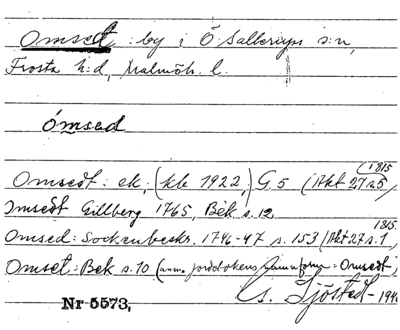 Omsedt : by i Ö Sallerups s:n,
Frosta h:d, Malmöh. l.
Ómsed
(1815
Omsedt : ek; (kb 1922,) G. 5 (Akt 27 s 5,
Omsedt Gillberg 1765, Bek s. 12
1815.
Omsed: Sockenbeskr. 1746-47 s. 153 (Akt 27 s. 1,
Omset: Bek s. 10 (anm. jordebokens namnform = Omsedt)
Nr 5573, G. Sjöstedt - 194